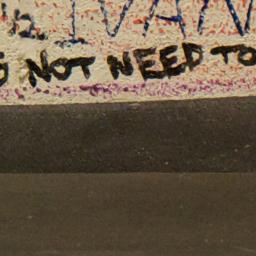 IVAN
NOT NEED TO